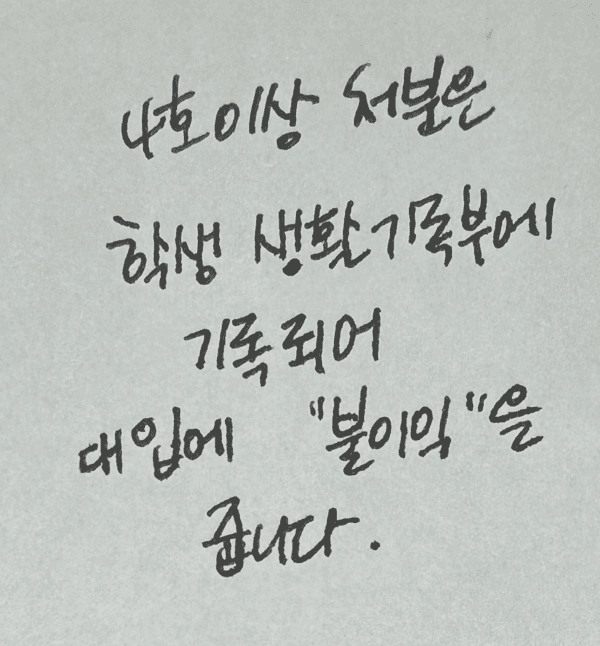 4호이상 처분은
학생 생활기록부에
기록되어
대입에 "불이익"을
줍니다.